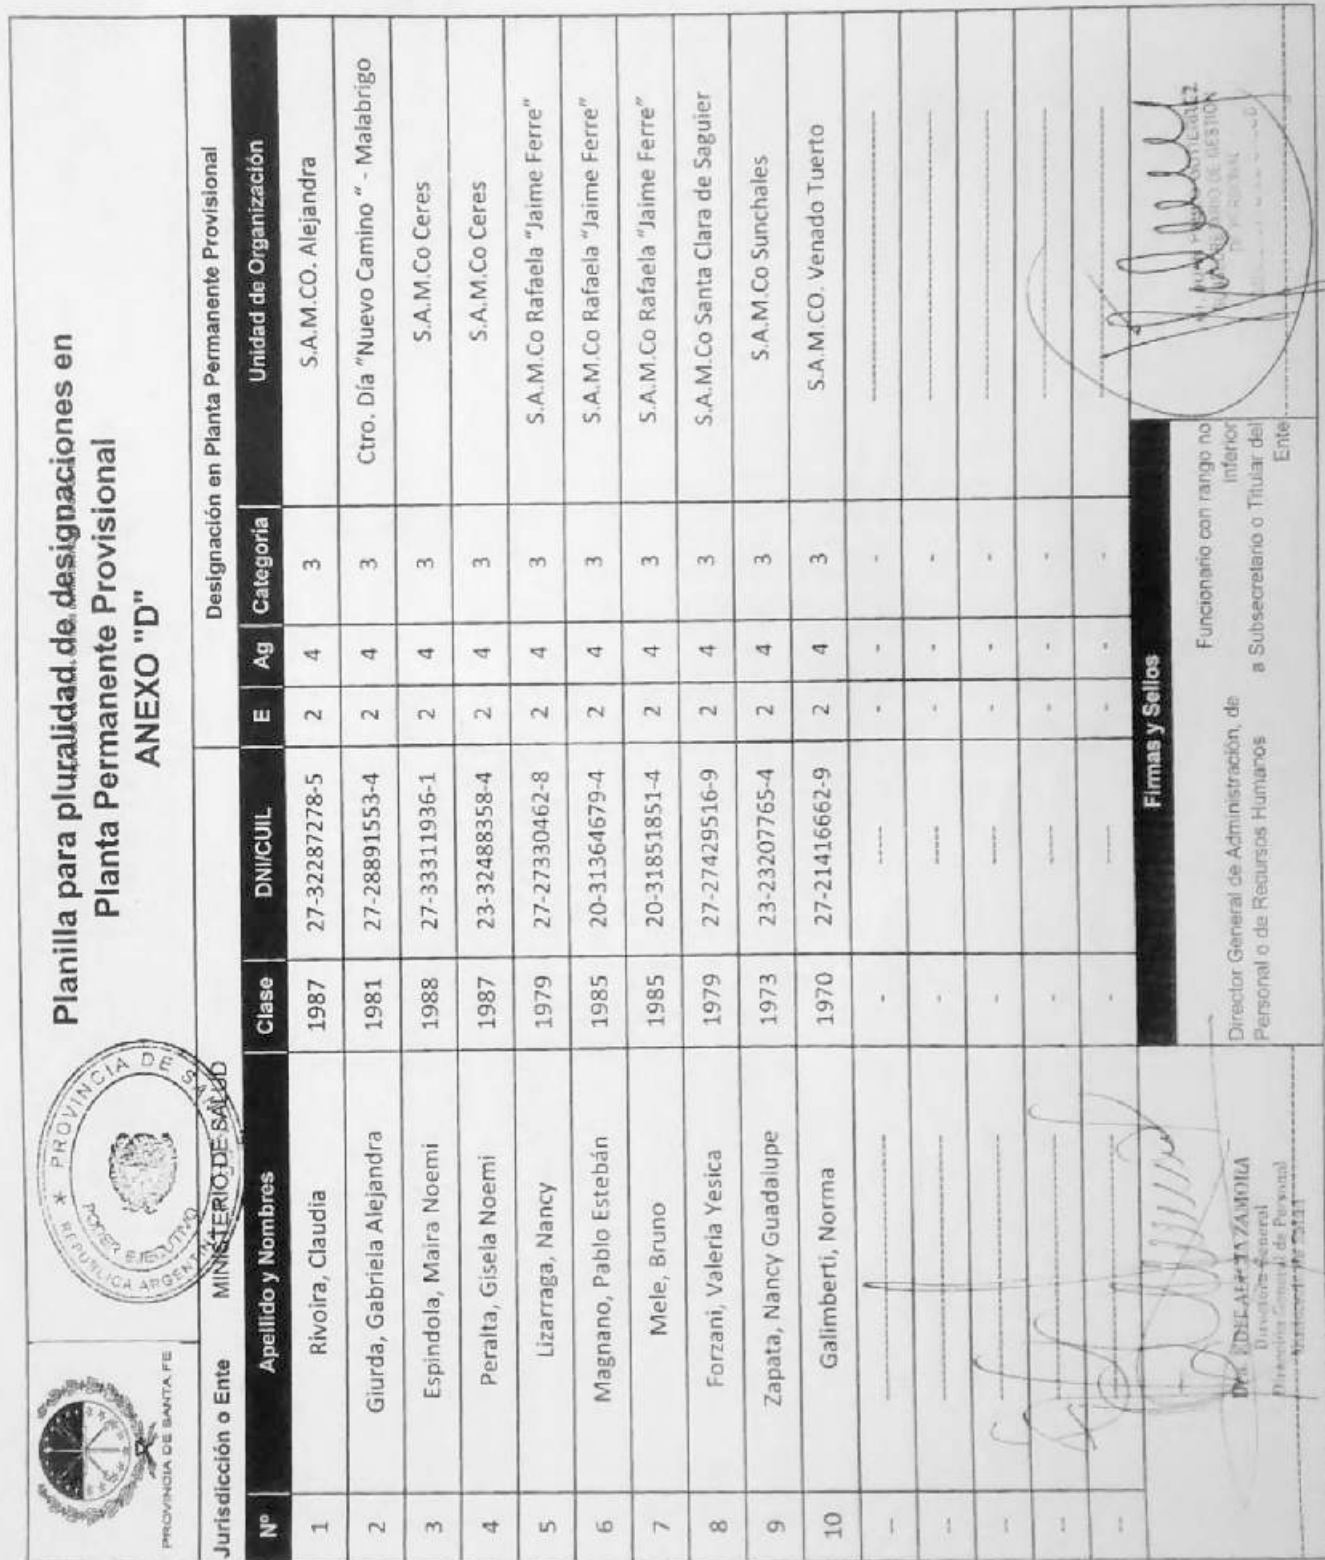 Planilla para pluralidad de designaciones en
Planta Permanente Provisional
ANEXO "D"
PROVINCIA DE SANTA FE
PROVINCIA DE SANTA
PODER EJECUTIVO
REPUBLICA ARGENTINA
Jurisdicción o Ente MINISTERIO DE SALUD
Designación en Planta Permanente Provisional
Nº Apellido y Nombres Clase DNI/CUIL E Ag Categoría Unidad de Organización
1 Rivoira, Claudia 1987 27-32287278-5 2 4 3 S.A.M.CO. Alejandra
2 Giurda, Gabriela Alejandra 1981 27-28891553-4 2 4 3 Ctro. Día "Nuevo Camino " - Malabrigo
3 Espindola, Maira Noemi 1988 27-33311936-1 2 4 3 S.A.M.Co Ceres
4 Peralta, Gisela Noemi 1987 23-32488358-4 2 4 3 S.A.M.Co Ceres
5 Lizarraga, Nancy 1979 27-27330462-8 2 4 3 S.A.M.Co Rafaela "Jaime Ferre"
6 Magnano, Pablo Estebán 1985 20-31364679-4 2 4 3 S.A.M.Co Rafaela "Jaime Ferre"
7 Mele, Bruno 1985 20-31851851-4 2 4 3 S.A.M.Co Rafaela "Jaime Ferre"
8 Forzani, Valeria Yesica 1979 27-27429516-9 2 4 3 S.A.M.Co Santa Clara de Saguier
9 Zapata, Nancy Guadalupe 1973 23-23207765-4 2 4 3 S.A.M.Co Sunchales
10 Galimberti, Norma 1970 27-21416662-9 2 4 3 S.A.M.CO. Venado Tuerto
Firmas y Sellos
Director General de Administración, de
Personal o de Recursos Humanos
Funcionario con rango no
inferior
a Subsecretario o Titular del
Ente
Directora General
Dirección General de Personal
DE GESTIÓN